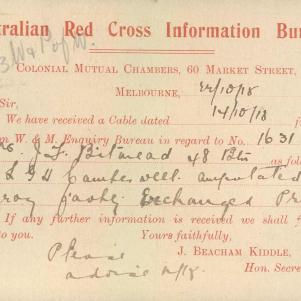 tralian Red Cross Information Bu
3 W & P of W.
COLONIAL MUTUAL CHAMBERS, 60 MARKET STREET,
MELBOURNE, 22/10/18
Sir,
14/10/18
We have received a Cable dated f
m W. & M. Enquiry Bureau in regard to No 1631
J. F. Bitmead 48 Btn as follo
L G H Camberwell. amputated
Exchanged Pr
If any further information is received we shall f
to you. Yours faithfully,
Please J. BEACHAM KIDDLE,
advise n/k Hon. Secre